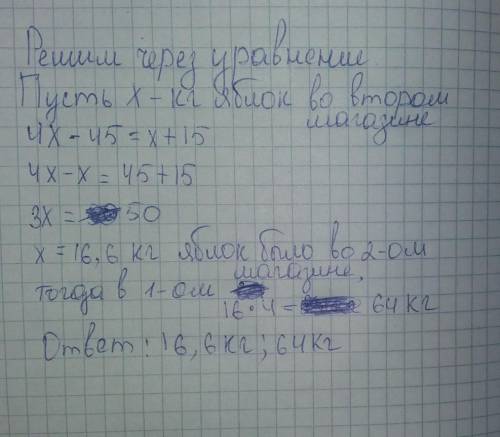 Решим через уравнение.
Пусть х - кг яблок во втором
магазине
4х - 45 = х + 15
4х - х = 45 + 15
3х = 50
х = 16,6 кг яблок было во 2-ом
магазине,
тогда в 1-ом
16 · 4 = 64 кг
Ответ: 16,6 кг; 64 кг